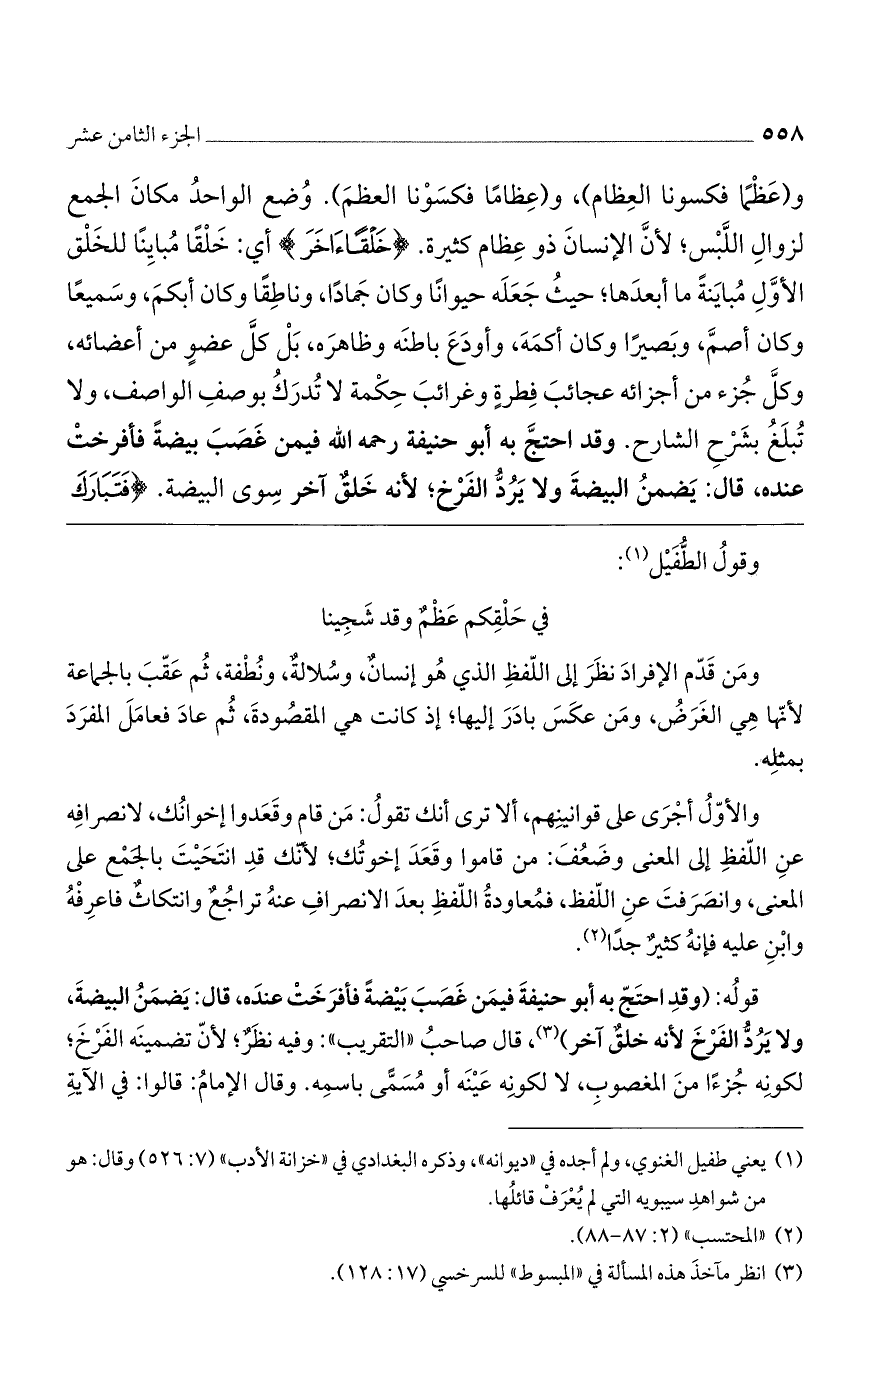 ٥٥٨ الجزء الثامن عشر
و(عَظْمًا فكسونا العِظام)، و(عِظامًا فكسَوْنا العظمَ). وُضع الواحدُ مكانَ الجمع
لزوالِ اللَّبْس؛ لأنَّ الإنسانَ ذو عِظام كثيرة. ﴿خَلْقًاءَاخَرَ﴾ أي: خَلْقًا مُبايِنًا للخَلْق
الأوَّلِ مُبايَنةً ما أبعدَها؛ حيثُ جَعَلَه حيوانًا وكان جَمادًا، وناطِقًا وكان أبكمَ، وسَميعًا
وكان أصمَّ، وبَصيرًا وكان أكمَهَ، وأودَعَ باطنَه وظاهرَه، بَلْ كلَّ عضوٍ من أعضائه،
وكلَّ جُزء من أجزائه عجائبَ فِطرةٍ وغرائبَ حِكْمة لا تُدرَكُ بوصفِ الواصف، ولا
تُبلَغُ بشَرْحِ الشارح. وقد احتجَّ به أبو حنيفة رحمه الله فيمن غَصَبَ بيضةً فأفرختْ
عنده، قال: يَضمنُ البيضةَ ولا يَرُدُّ الفَرْخ؛ لأنه خَلقٌ آخر سِوى البيضة. ﴿فَتَبَارَكَ
وقولُ الطُّفَيْل(١):
في حَلْقِكم عَظْمٌ وقد شَجِينا
ومَن قَدّم الإفرادَ نظَرَ إلى اللّفظِ الذي هُو إنسانٌ، وسُلالةٌ، ونُطْفة، ثُم عَقّبَ بالجماعة
لأنّها هِي الغَرَضُ، ومَن عكَسَ بادَرَ إليها؛ إذ كانت هي المقصُودةَ، ثُم عادَ فعامَلَ المفرَدَ
بمثلِه.
والأوّلُ أجْرَى على قوانينِهم، ألا ترى أنك تقولُ: مَن قام وقَعَدوا إخوانُك، لانصرافِه
عنِ اللّفظِ إلى المعنى وضَعُفَ: من قاموا وقَعَدَ إخوتُك؛ لأنّك قدِ انتَحَيْتَ بالجَمْع على
المعنى، وانصَرَفتَ عنِ اللّفظ، فمُعاودةُ اللّفظِ بعدَ الانصرافِ عنهُ تراجُعٌ وانتكاثٌ فاعرِفْهُ
وابْنِ عليه فإنهُ كثيرٌ جدًا(٢).
قولُه: (وقدِ احتَجّ به أبو حنيفةَ فيمَن غَصَبَ بَيْضةً فأفرَخَتْ عندَه، قال: يَضمَنُ البيضةَ،
ولا يَرُدُّ الفَرْخَ لأنه خلقٌ آخر)(٣)، قال صاحبُ «التقريب»: وفيه نظَرٌ؛ لأنّ تضمينَه الفَرْخَ؛
لكونِه جُزءًا منَ المغصوبِ، لا لكونِه عَيْنَه أو مُسَمًّى باسمِه. وقال الإمامُ: قالوا: في الآيةِ
(١) يعني طفيل الغنوي، ولم أجده في «ديوانه»، وذكره البغدادي في «خزانة الأدب» (٧: ٥٢٦) وقال: هو
من شواهدِ سيبويه التي لم يُعْرَفْ قائلُها.
(٢) «المحتسب» (٢: ٨٧-٨٨).
(٣) انظر مآخذَ هذه المسألة في «المبسوط» للسرخسي (١٧: ١٢٨).